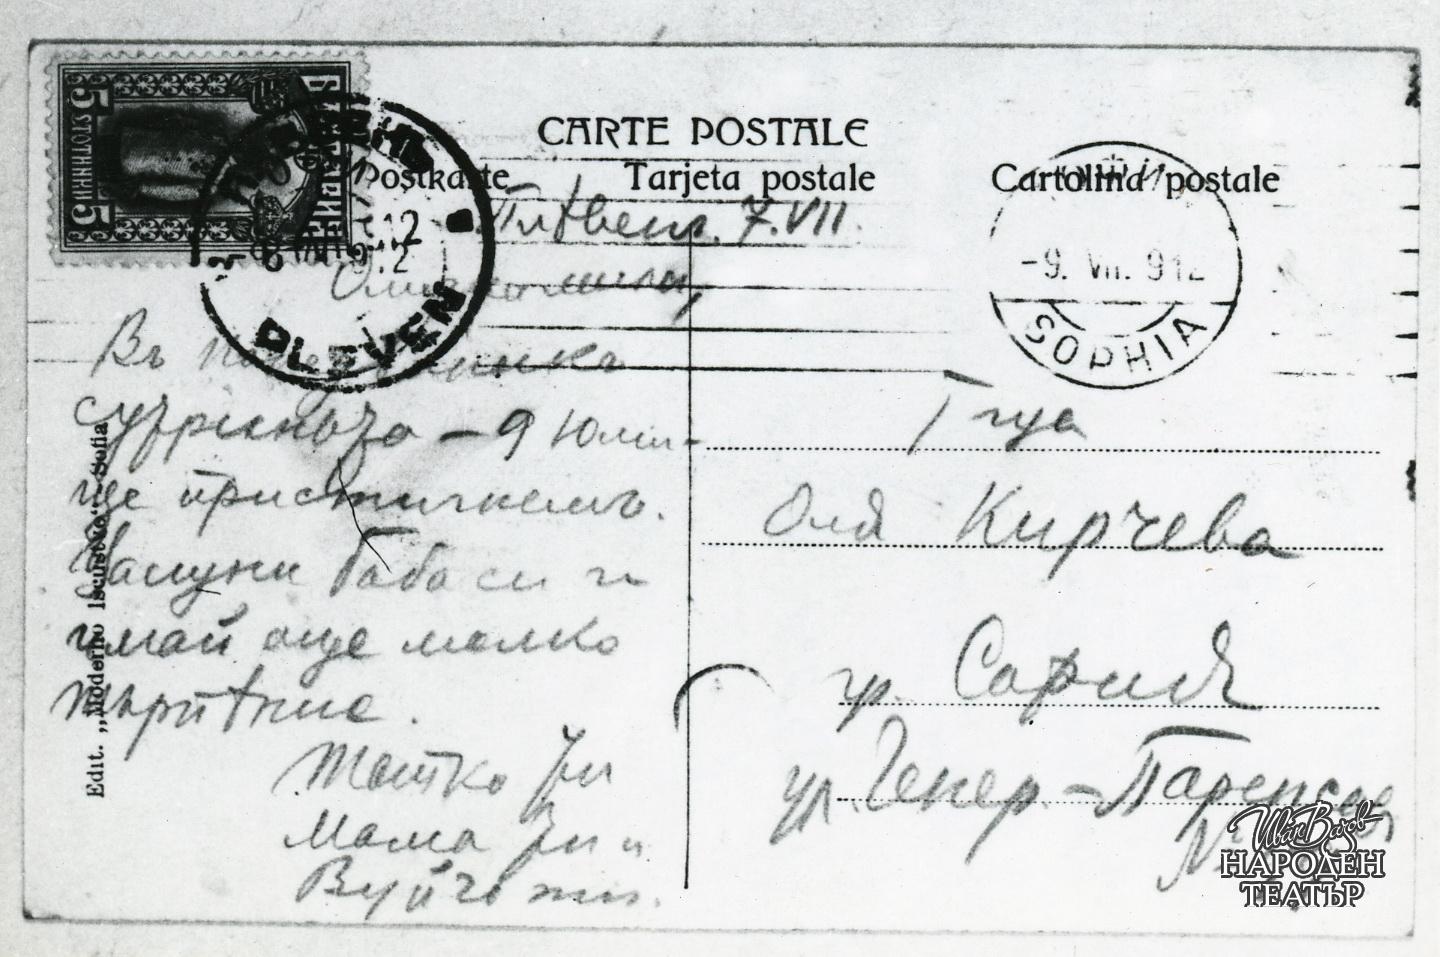 CARTE POSTALE
Postkarte Tarjeta postale Cartolina postale
БЪЛГАРИЯ
5 STOTINKI 5
PLEVEN
-9. VII. 912
SOPHIA
Плѣвен. 7.VII.
Въ
сутриньта – 9 Юлий –
ще пристигнемъ.
Целуни баба си и
имай още малко
търпѣние.
Татко ти
Мама ти и
Вуйчо ти.
Г-ца
Оля Кирчева
гр. София
ул. Генер. – Паренсов
№
Edit. „Moderno Iscustvo“ – Sofia
Иван Вазов
НАРОДЕН
ТЕАТЪР